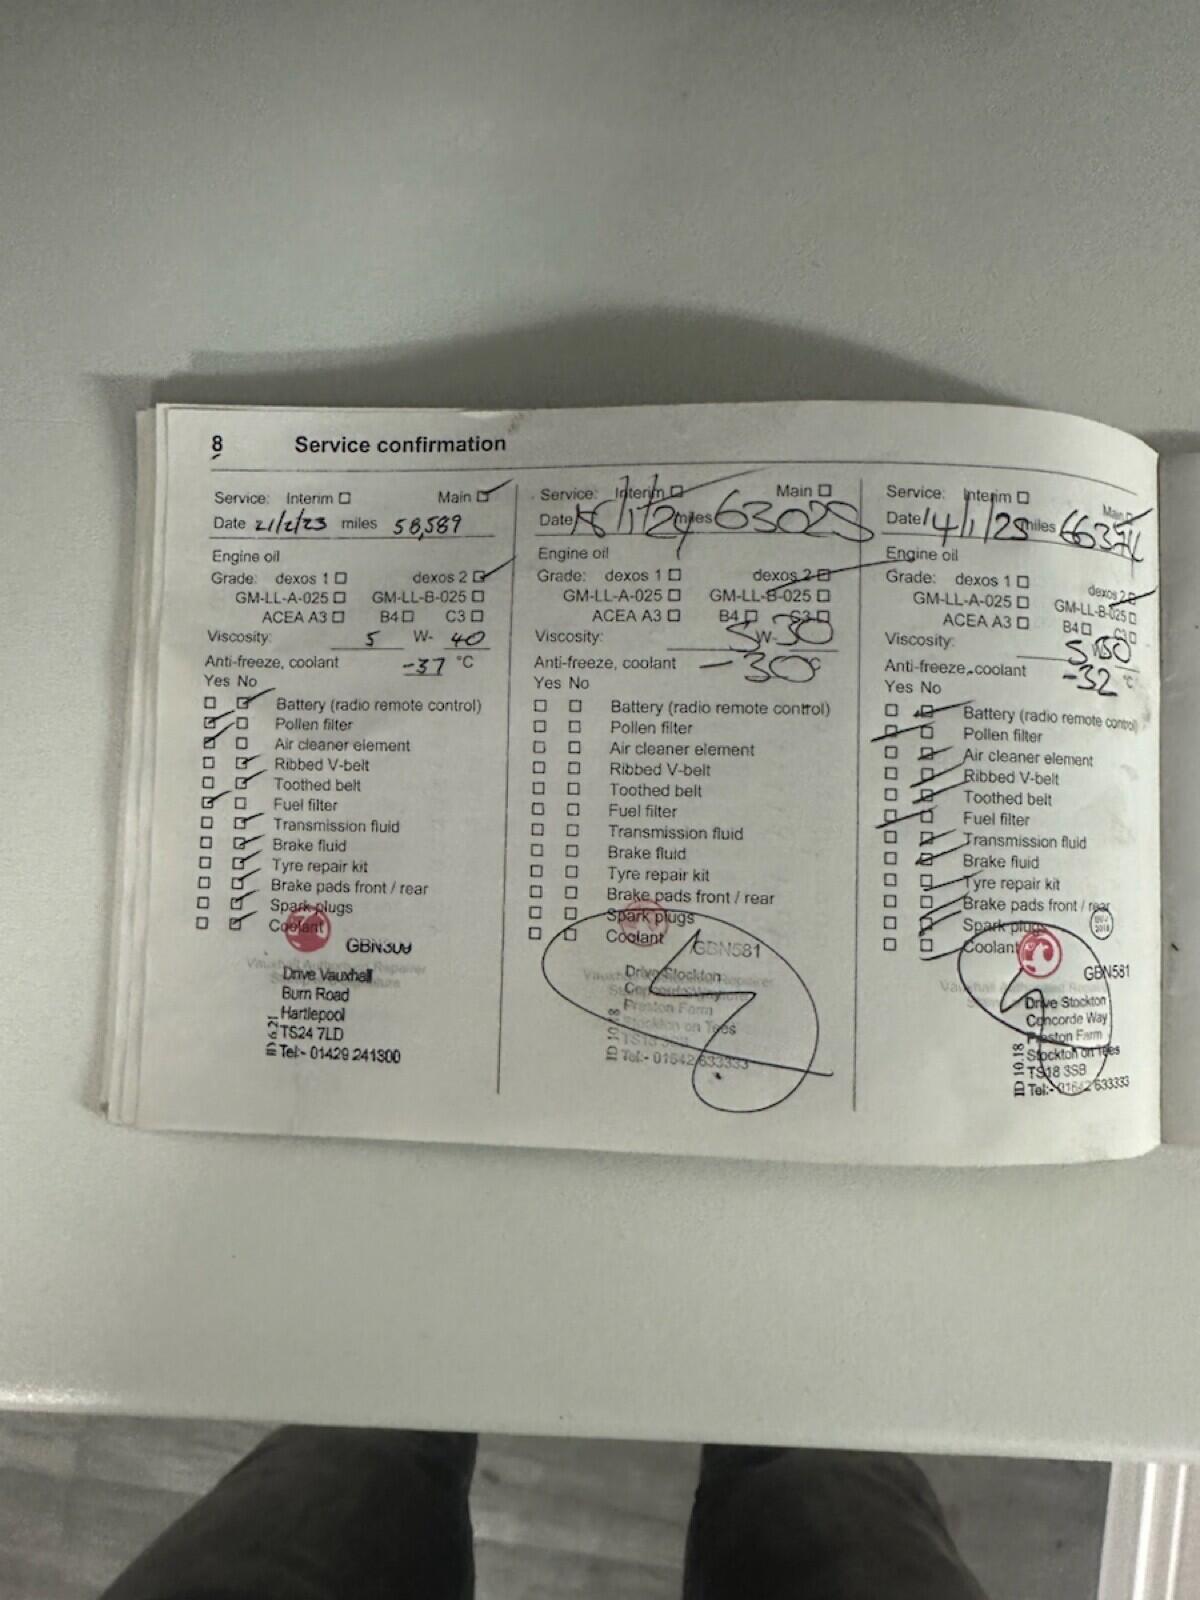 8 Service confirmation
Service: Interim Main
Date 21/2/23 miles 58,589
Engine oil
Grade: dexos 1 dexos 2
GM-LL-A-025 GM-LL-B-025
ACEA A3 B4 C3
Viscosity: 5 W- 40
Anti-freeze, coolant -37 °C
Yes No
Battery (radio remote control)
Pollen filter
Air cleaner element
Ribbed V-belt
Toothed belt
Fuel filter
Transmission fluid
Brake fluid
Tyre repair kit
Brake pads front / rear
Spark plugs
Coolant
Drive Vauxhall
Burn Road
Hartlepool
TS24 7LD
Tel:- 01429 241300
Service: Interim Main
Date miles 63025
Engine oil
Grade: dexos 1 dexos 2
GM-LL-A-025 GM-LL-B-025
ACEA A3 B4 C3
Viscosity: 5 W- 30
Anti-freeze, coolant -30°
Yes No
Battery (radio remote control)
Pollen filter
Air cleaner element
Ribbed V-belt
Toothed belt
Fuel filter
Transmission fluid
Brake fluid
Tyre repair kit
Brake pads front / rear
Spark plugs
Coolant
GBN581
Drive Stockton
Concorde Way
Preston Farm
Stockton on Tees
ID 10.18
Tel:- 01642 633333
Service: Interim Main
Date 14/1/25 miles
Engine oil
Grade: dexos 1 dexos 2
GM-LL-A-025 GM-LL-B-025
ACEA A3 B4 C3
Viscosity: 5 W30
Anti-freeze, coolant -32 °C
Yes No
Battery (radio remote control)
Pollen filter
Air cleaner element
Ribbed V-belt
Toothed belt
Fuel filter
Transmission fluid
Brake fluid
Tyre repair kit
Brake pads front / rear
Spark plugs
Coolant
GBN581
Drive Stockton
Concorde Way
Preston Farm
Stockton on Tees
TS18 3SB
ID 10.18
Tel:- 01642 633333